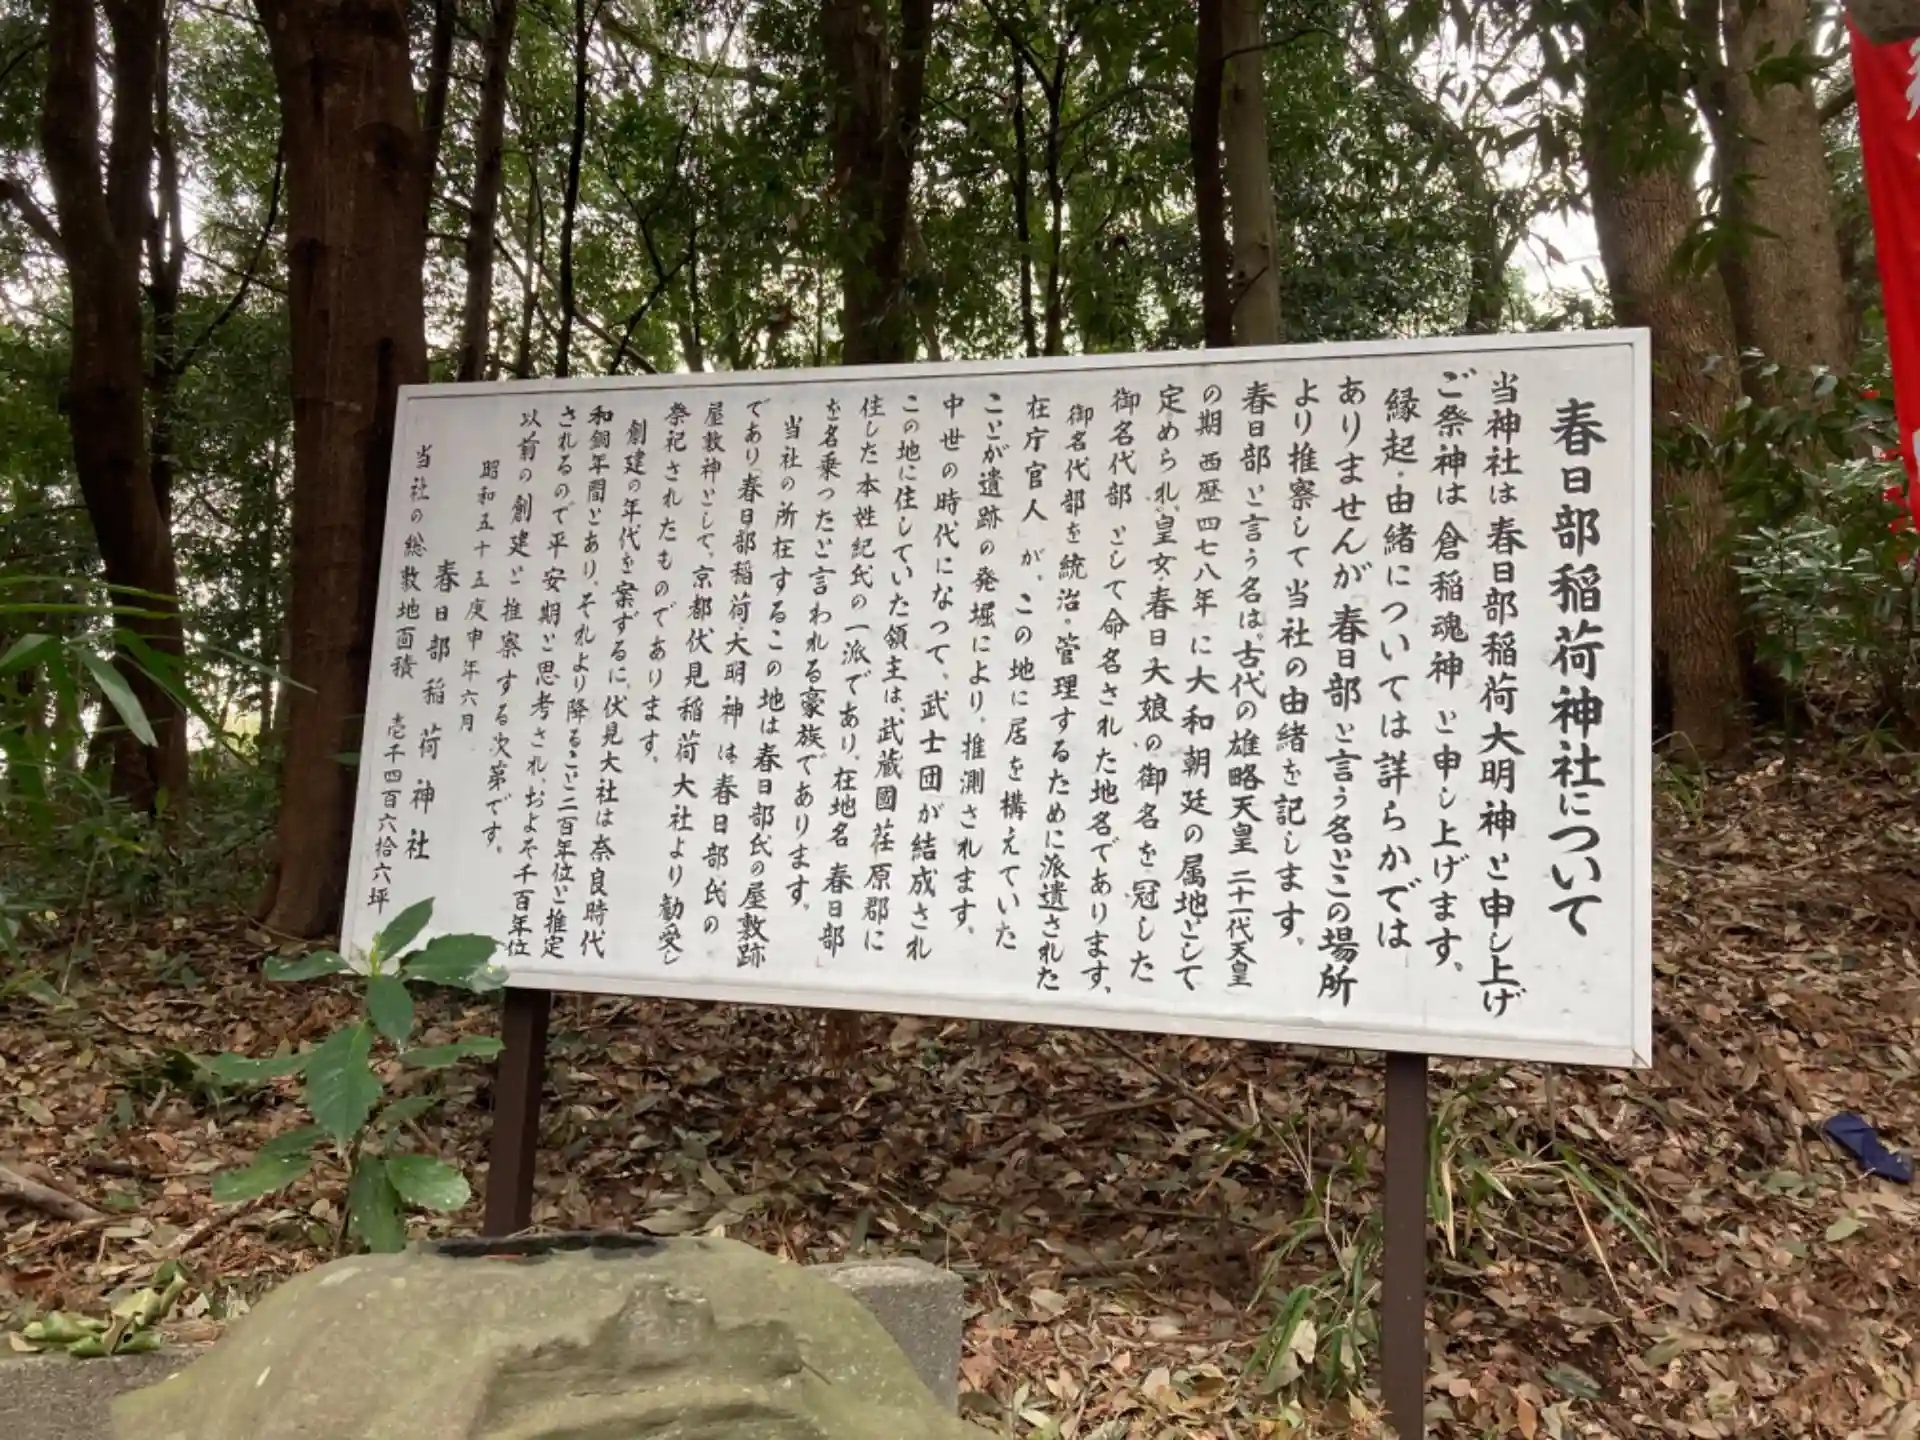 春日部稲荷神社について
当神社は春日部稲荷大明神と申し上げ
ご祭神は「倉稲魂神」と申し上げます。
縁起・由緒については詳らかでは
ありませんが「春日部」と言う名とこの場所
より推察して当社の由緒を記します。
「春日部」と言う名は、古代の雄略天皇 二十一代天皇
の期 西歴四七八年 に大和朝廷の属地として
定められ、皇女・春日大娘の御名を冠した
御名代部 として命名された地名であります、
御名代部を統治・管理するために派遣された
在庁官人 が、この地に居を構えていた
ことが遺跡の発堀により、推測されます。
中世の時代になって、武士団が結成され
この地に住していた領主は、武蔵國荏原郡に
住した本姓紀氏の一派であり、在地名 春日部
を名乗ったと言われる豪族であります。
当社の所在するこの地は春日部氏の屋敷跡
であり「春日部稲荷大明神」は春日部氏の
屋敷神として、京都伏見稲荷大社より勧受し
祭祀されたものであります。
創建の年代を案ずるに、伏見大社は奈良時代
和銅年間とあり、それより降ること二百年位と推定
されるので平安期と思考され、およそ千百年位
以前の創建と推察する次第です。
昭和五十五庚申年六月
春日部稲荷神社
当社の総敷地面積 壱千四百六拾六坪